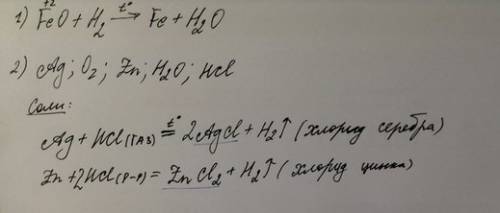 1) FeO + H₂ →t° Fe + H₂O
+2
2) Ag; O₂; Zn; H₂O; HCl
Соли:
Ag + HCl(газ) =t° 2AgCl + H₂↑ (хлорид серебра)
Zn + 2HCl(р-р) = ZnCl₂ + H₂↑ (хлорид цинка)